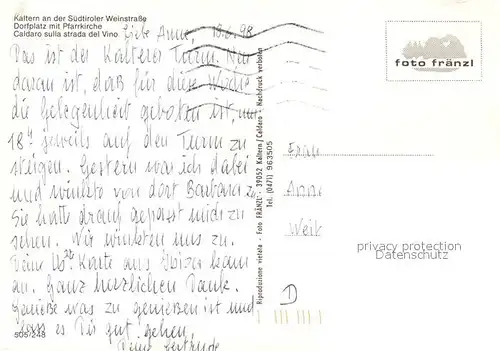 Kaltern an der Südtiroler Weinstraße
Dorfplatz mit Pfarrkirche
Caldaro sulla strada del Vino
Liebe Anne, 18.6.98
Das ist der Kalterer Turm. Nur
daran ist, daß für diese Woche
die Gelegenheit geboten ist, um
18h jeweils auf den Turm zu
steigen. Gestern war ich dabei
und winkte von dort Barbara z.
Sie hatte drauf gepasst mich zu
sehen. Wir winkten uns zu.
Deine Karte aus Ibiza kam
an. Ganz herzlichen Dank.
Genieße was zu genießen ist und
lass es Dir gut gehen.
Deine Gertrude
505/248
Riproduzione vietata - Foto FRÄNZL - 39052 Kaltern/Caldaro - Nachdruck verboten
Tel. (0471) 963505
foto fränzl
Frau
Anne
Weit
privacy protection
Datenschutz
D